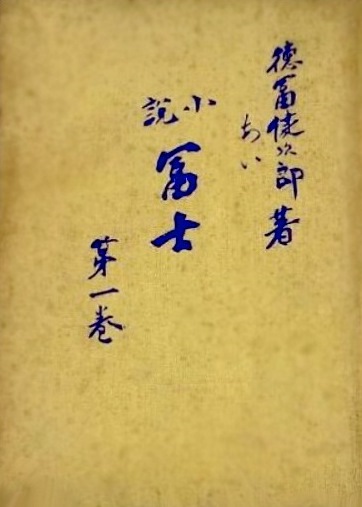 德冨健次郎 著
あい
小說
冨士
第一卷